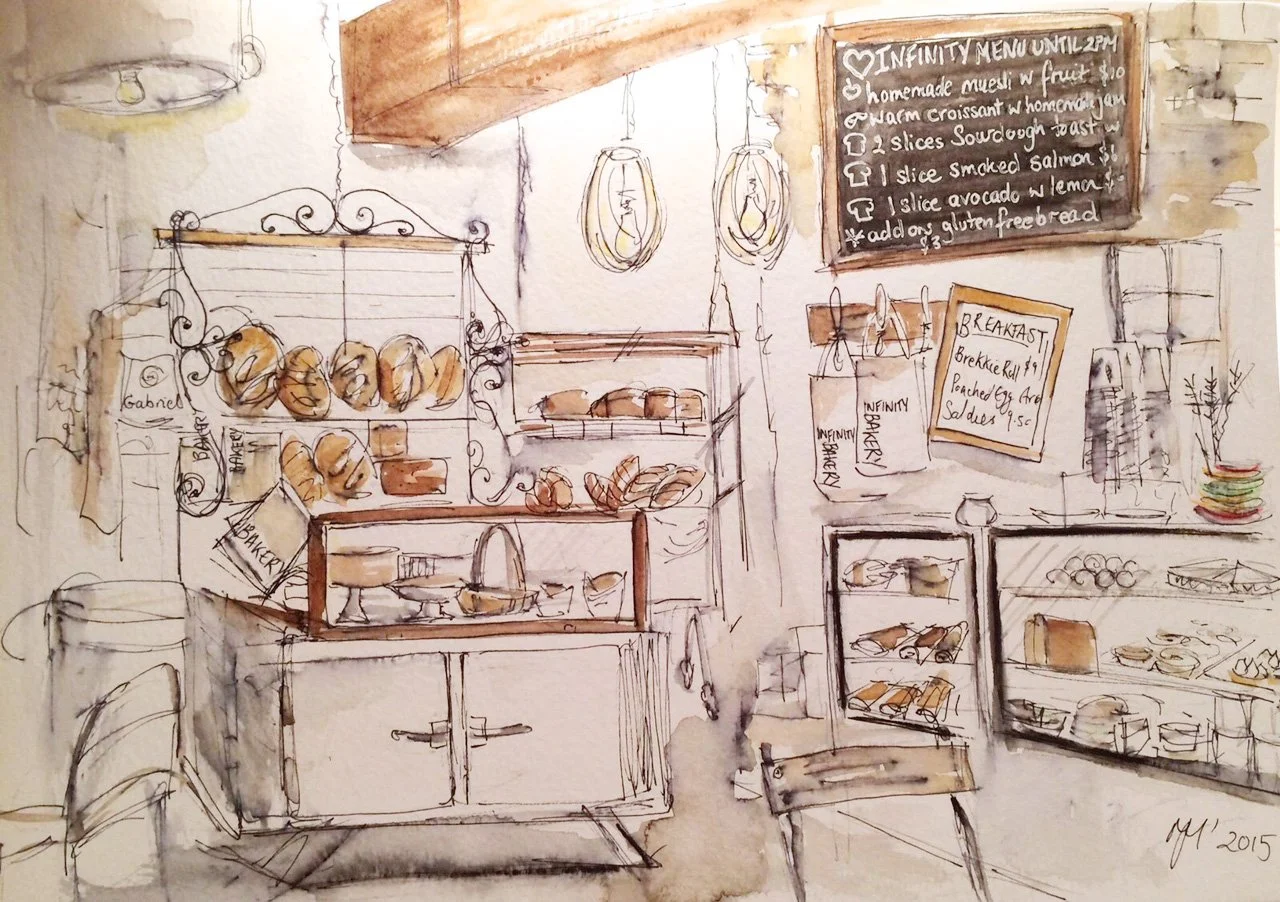 INFINITY MENU UNTIL 2PM
homemade muesli w fruit $10
warm croissant w homemade jam
2 slices Sourdough toast w
1 slice smoked salmon $6
1 slice avocado w lemon
add on gluten free bread
$3
BREAKFAST
Brekkie Roll $9
Poached Egg And
Soldiers 9.50
INFINITY
BAKERY
INFINITY
BAKERY
Gabriel
BAKERY
BAKERY
BAKERY
2015